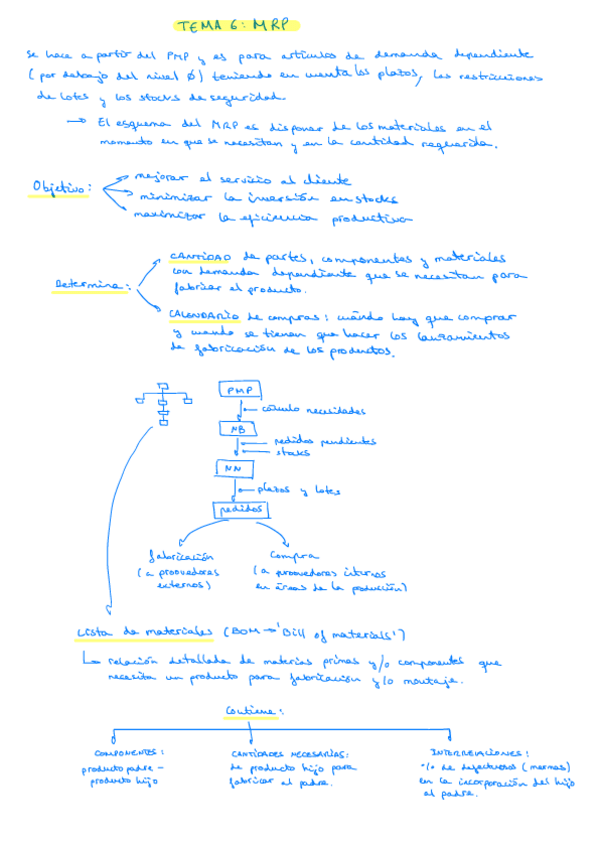 TEMA 6: MRP
Se hace a partir del PMP y es para artículos de demanda dependiente
(por debajo del nivel Ø) teniendo en cuenta los plazos, las restricciones
de lotes y los stocks de seguridad.
→ El esquema del MRP es disponer de los materiales en el
momento en que se necesitan y en la cantidad requerida.
Objetivo:
mejorar el servicio al cliente
minimizar la inversión en stocks
maximizar la eficiencia productiva
Determina:
CANTIDAD de partes, componentes y materiales
con demanda dependiente que se necesitan para
fabricar el producto.
CALENDARIO de compras: cuándo hay que comprar
y cuando se tienen que hacer los lanzamientos
de fabricación de los productos.
PMP
cálculo necesidades
NB
pedidos pendientes
stocks
NN
plazos y lotes
pedidos
fabricación
(a proveedores
externos)
compra
(a proveedores internos
en áreas de la producción)
Lista de materiales (BOM → 'Bill of materials')
relación detallada de materias primas y/o componentes que
necesita un producto para fabricación y/o montaje.
Contiene:
COMPONENTES:
producto padre -
producto hijo
CANTIDADES NECESARIAS:
de producto hijo para
fabricar al padre.
INTERRELACIONES:
% de defectuosos (mermas)
en la incorporación del hijo
al padre.